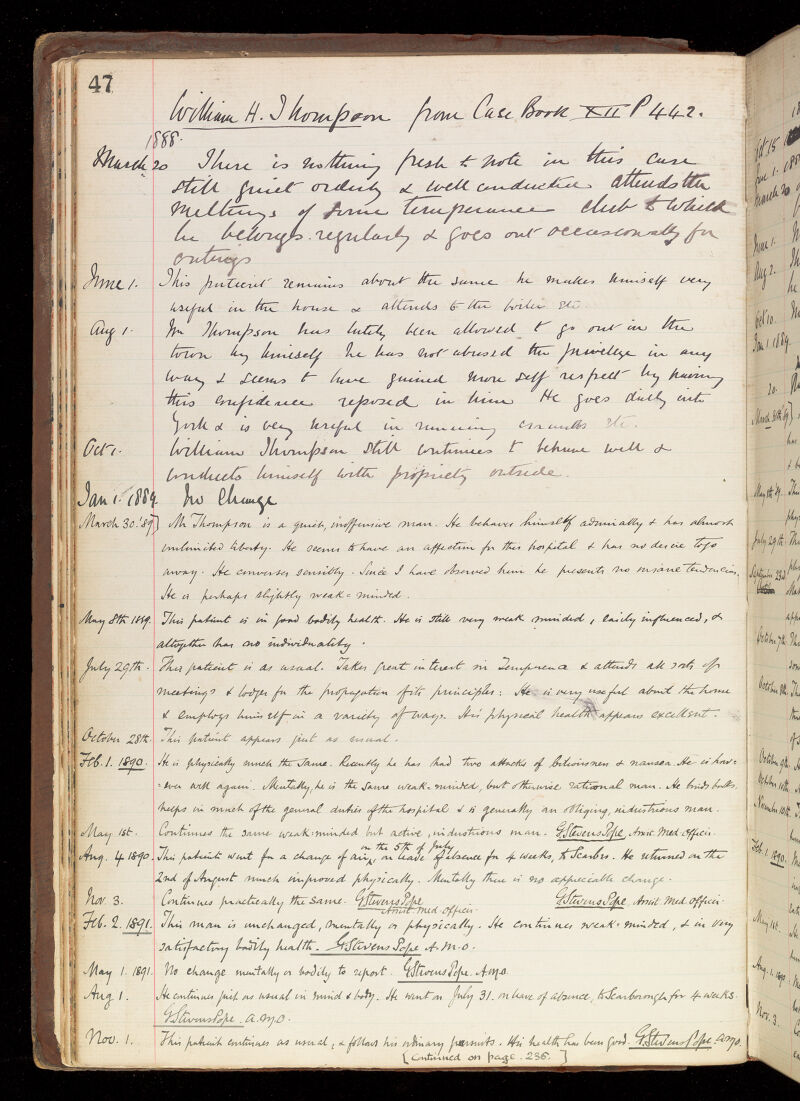 47
William H. Thompson from Case Book XII P 442.
1888.
March 20 There is nothing fresh to note in this case
still quiet orderly & well conducted attends the
meetings of some temperance club to which
he belongs regularly & goes out occasionally for
outings
June 1. This patient remains about the same he makes himself very
useful in the house & attends to the boiler etc.
Aug 1. Wm Thompson has lately been allowed to go out in the
town by himself he has not abused the privilege in any
way & seems to have gained more self respect by having
this confidence reposed in him He goes daily into
York & is very useful in running errands etc.
Oct 1. William Thompson still continues to behave well &
conducts himself with propriety outside.
Jan 1. 1889. No Change
March 30. '89 Mr Thompson is a quiet, inoffensive man. He behaves himself admirably & has almost
unlimited liberty. He seems to have an affection for this hospital & has no desire to go
away. He converses sensibly. Since I have observed him he presents no insane tendencies.
He is perhaps slightly weak-minded.
May 8th 1889. This patient is in good bodily health. He is still very weak minded, easily influenced, &
altogether has no individuality.
July 29th. This patient is as usual. Takes great interest in Temperance & attends all sorts of
meetings & lodges for the propagation of its principles. He is very useful about the home
& employs himself in a variety of ways. His physical health appears excellent.
October 28th. This patient appears just as usual.
Feb. 1. 1890. He is physically much the same. Recently he has had two attacks of biliousness & nausea. He is how-
-ever well again. Mentally, he is the same weak-minded, but otherwise rational man. He binds books
helps in much of the general duties of the hospital & is generally an obliging, industrious man.
May 1st. Continues the same weak-minded but active, industrious man. G Stevens Pope, Assist. Med Officer.
on the 5th of July
Aug. 4 1890. This patient went for a change of air, on leave of absence for 4 weeks, to Scarbro. He returned on the
2nd of August much improved physically. Mentally there is no appreciable change.
G Stevens Pope, Assist Med officer.
Nov. 3. Continues practically the same. G Stevens Pope
Assist Med officer.
Feb. 2. 1891. This man is unchanged, mentally or physically. He continues weak-minded, & in very
satisfactory bodily health. G Stevens Pope A.M.O.
May 1. 1891. No change mentally or bodily to report. G Stevens Pope. A.M.O.
Aug 1. He continues just as usual in mind & body. He went on July 31. on leave of absence, to Scarborough for 4 weeks.
G Stevens Pope. A.M.O.
Nov. 1. This patient continues as usual, & follows his ordinary pursuits. His health has been good. G Stevens Pope A.M.O.
[Continued on page 236.]
Oct 15
June 1.
March 20
June 1.
Aug 2.
Oct 10.
Jan 1 1889.
20.
March 30th '89
May 8th 89.
July 29th.
September 23rd
October 7th.
October 8th.
October 9th.
October 10th.
Feb. 1. 1890.
May 1st.
Aug. 4. 1890
Nov. 3.